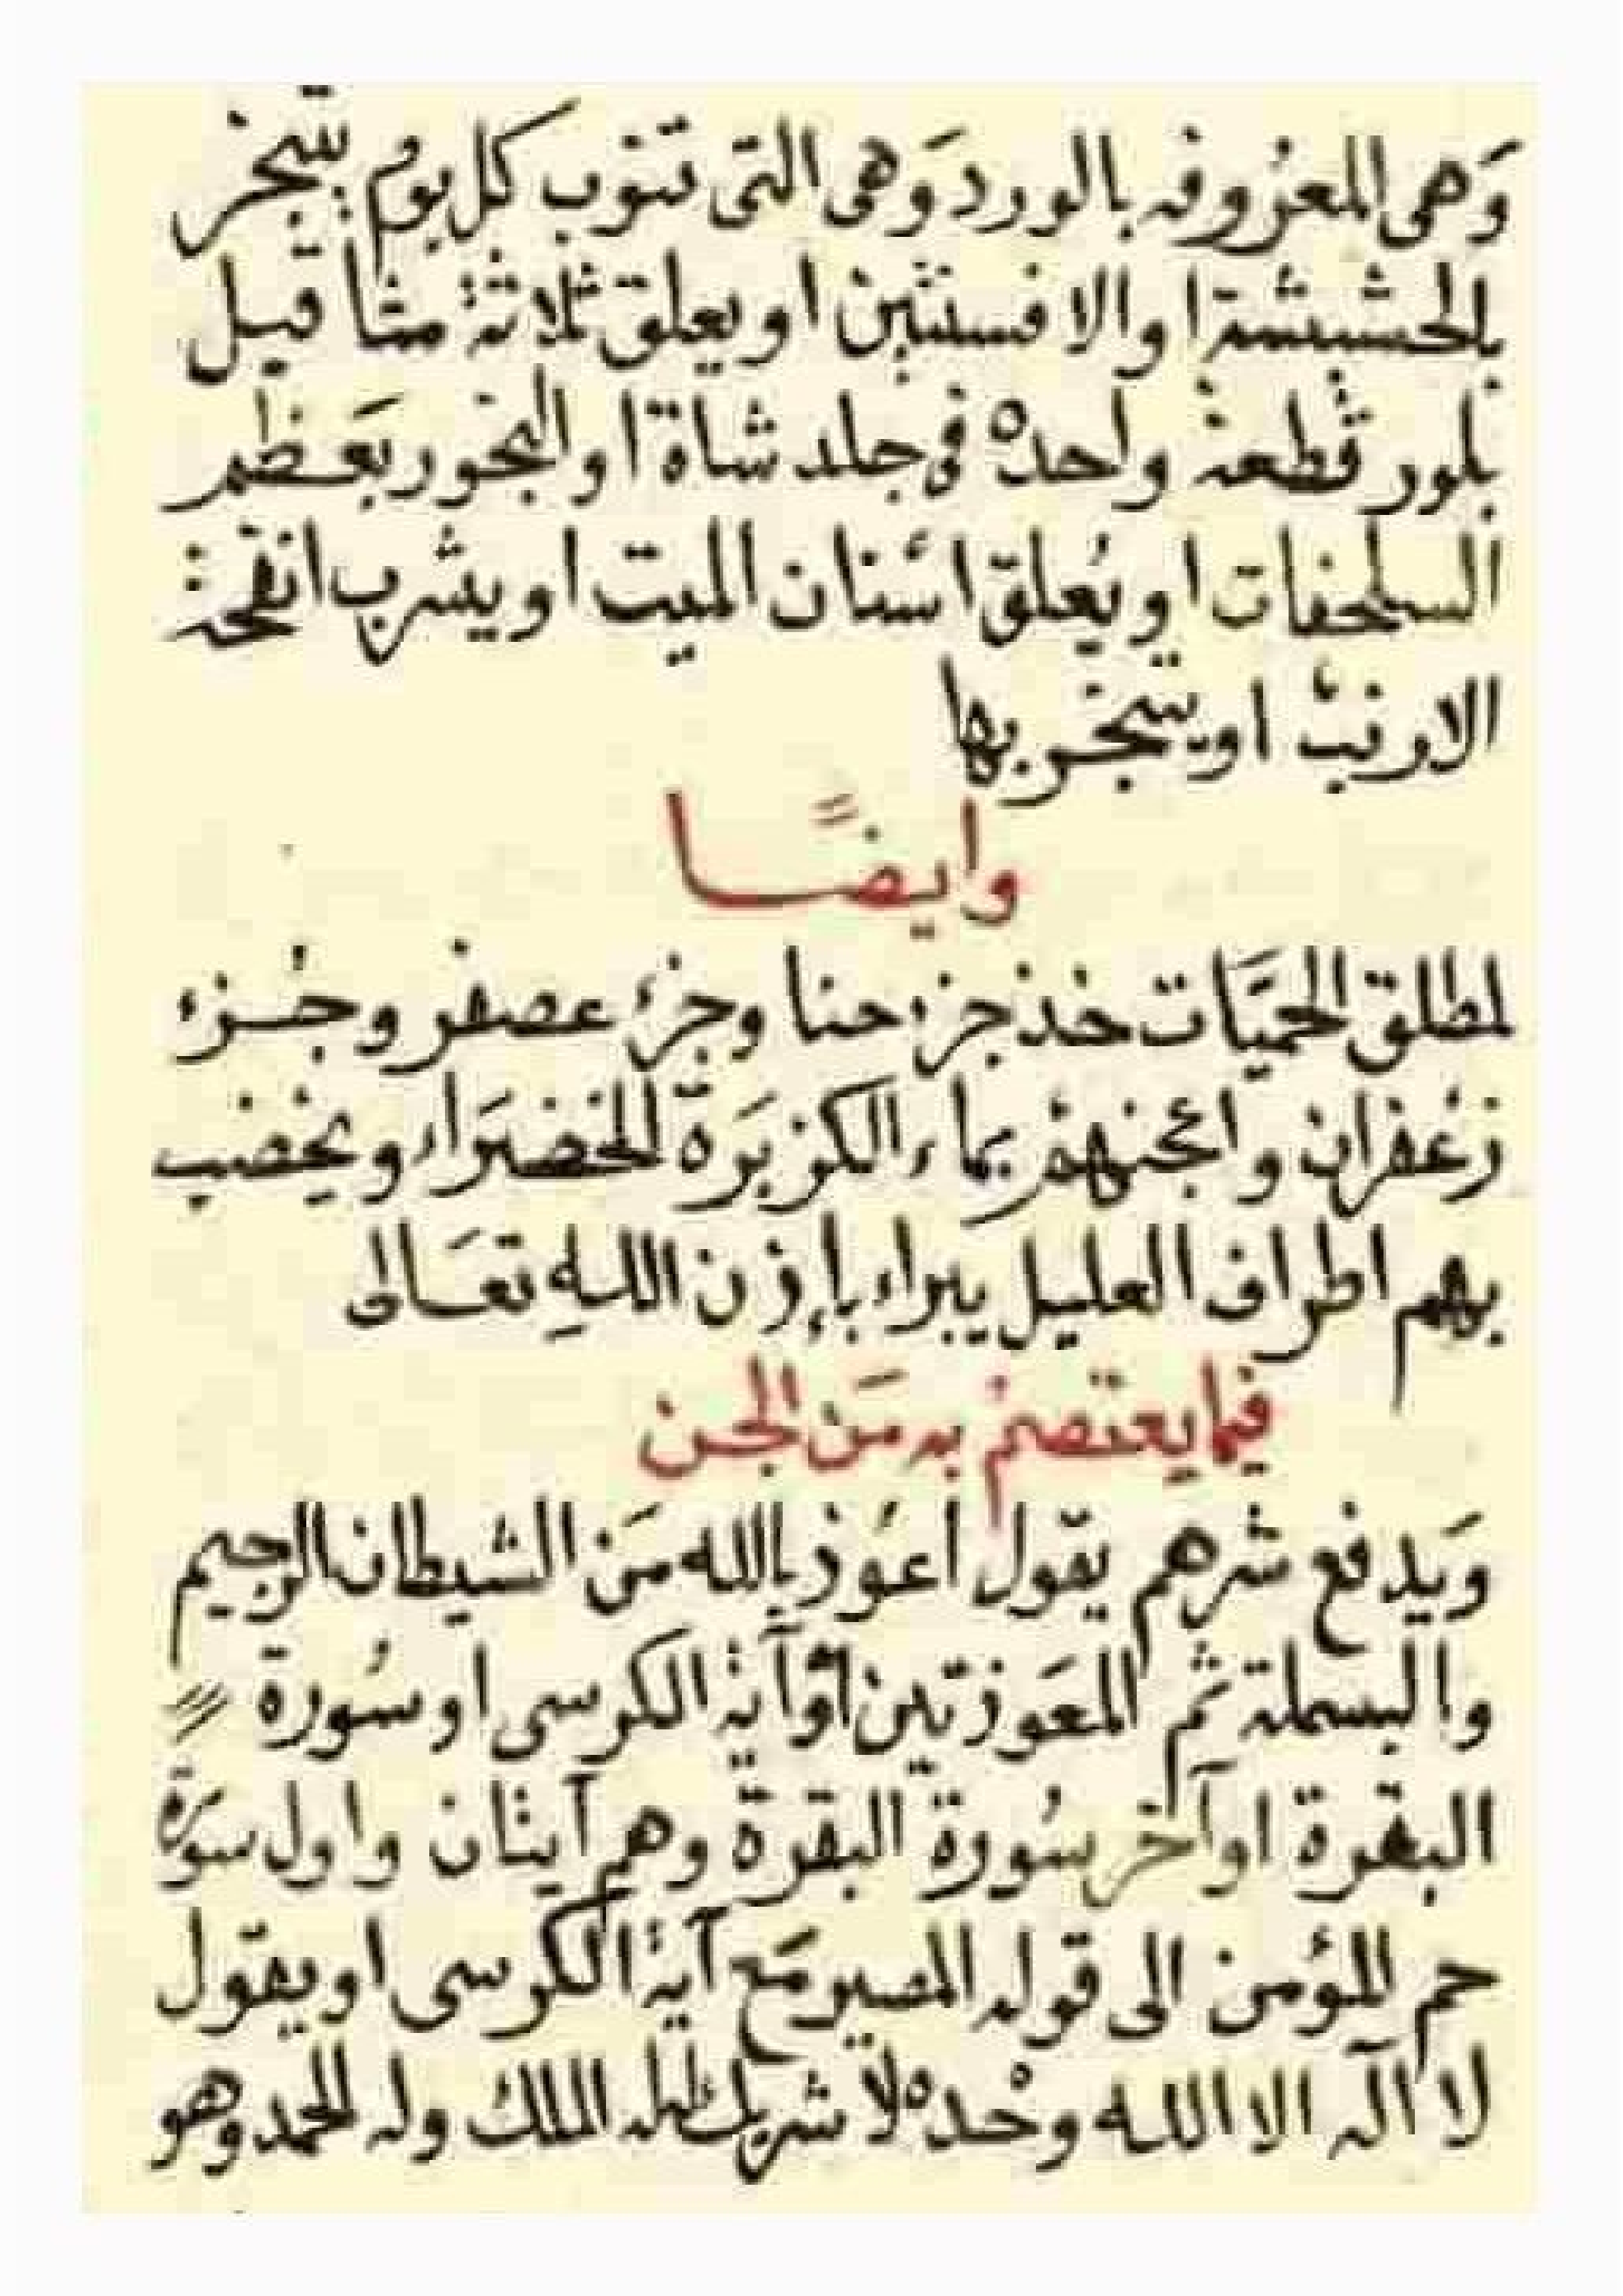 وَهى المعزوفه بالورد وَهى التى تنوب كل يوم يتبخر
بالحشيشة او الافسنتين او يعلق ثلاثة مثاقيل
بلور قطعة واحده فى جلد شاة او البخور بعَظم
السلحفات او يُعلق اسنان الميت او يشرب انفحة
الارنب او يتبخر بها
وايضًا
لمطلق الحميَّات خذ جزء حنا وجزء عصفر وجزء
زعفران واعجنهم بماء الكزبَرة الخضرَاء ويخضب
بهم اطراف العليل يبراء بإذن اللهِ تعَالى
فيما يعتصم به مَن الجن
وَيدفع شرهم يقول اعوذ بالله مَن الشيطان الرجيم
والبسملة ثم المعَوذتين او آية الكرسى او سُورة
البقرة او آخر سُورة البقرة وهم آيتان واول سورة
حم المؤمن الى قوله المصير مَع آية الكرسى او يقول
لا اله الا الله وحده لا شريك له له الملك وله الحمد وهو